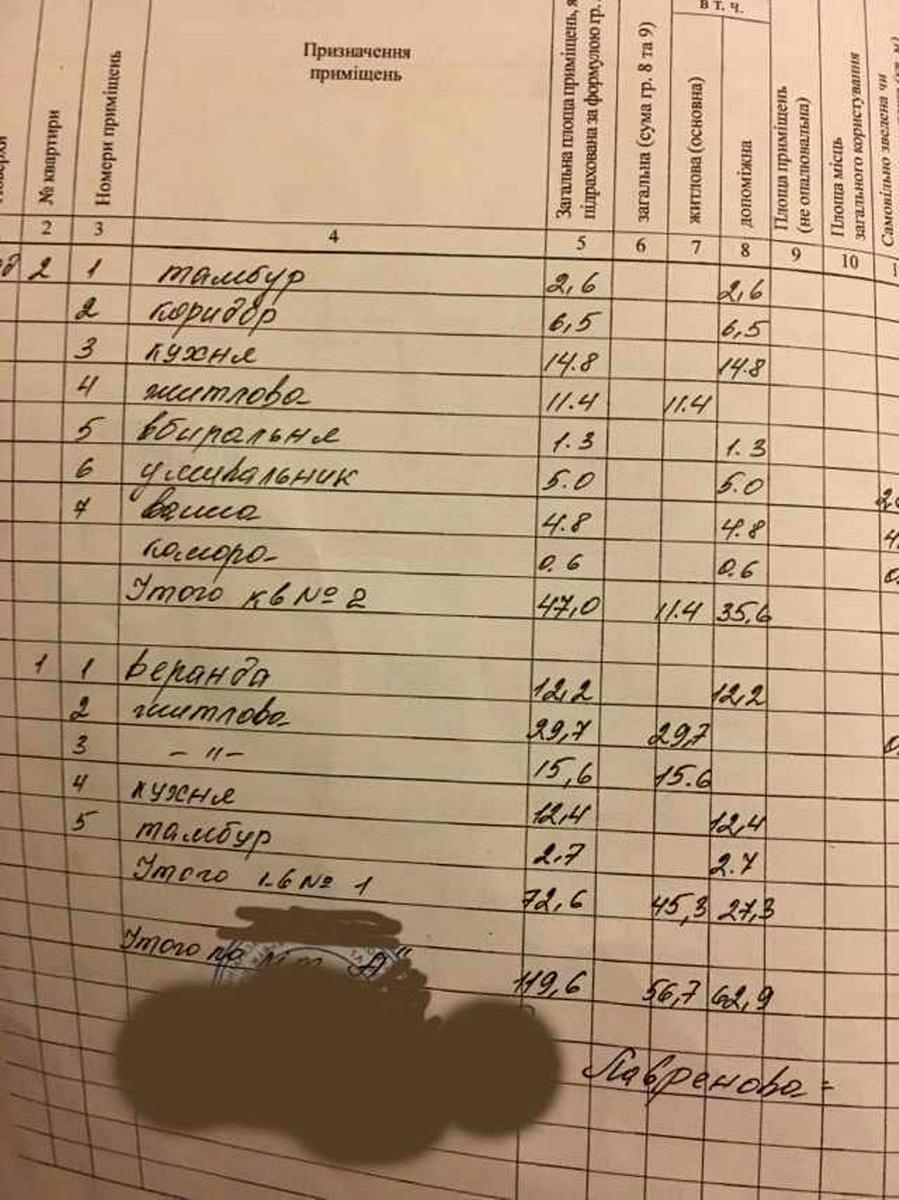 Поверхи
№ квартири
Номери приміщень
Призначення
приміщень
Загальна площа приміщень, я
підрахована за формулою гр.
загальна (сума гр. 8 та 9)
в т. ч.
житлова (основна)
допоміжна
Площа приміщень
(не опалювальна)
Площа місць
загального користування
Самовільно зведена чи
2 3 4 5 6 7 8 9 10 1
2 1 тамбур 2,6 2,6
2 коридор 6,5 6,5
3 кухня 14.8 14.8
4 житлова 11.4 11.4
5 вбиральня 1.3 1.3
6 умивальник 5.0 5.0
7 ванна 4.8 4.8
комора 0.6 0.6
Итого кв № 2 47,0 11.4 35,6
1 1 веранда 12,2 12,2
2 житлова 29,7 29,7
3 – " – 15,6 15.6
4 кухня 12,4 12,4
5 тамбур 2.7 2.7
Итого кв № 1 72,6 45,3 27,3
Итого по лит „А" 119,6 56,7 62,9
Лавренова